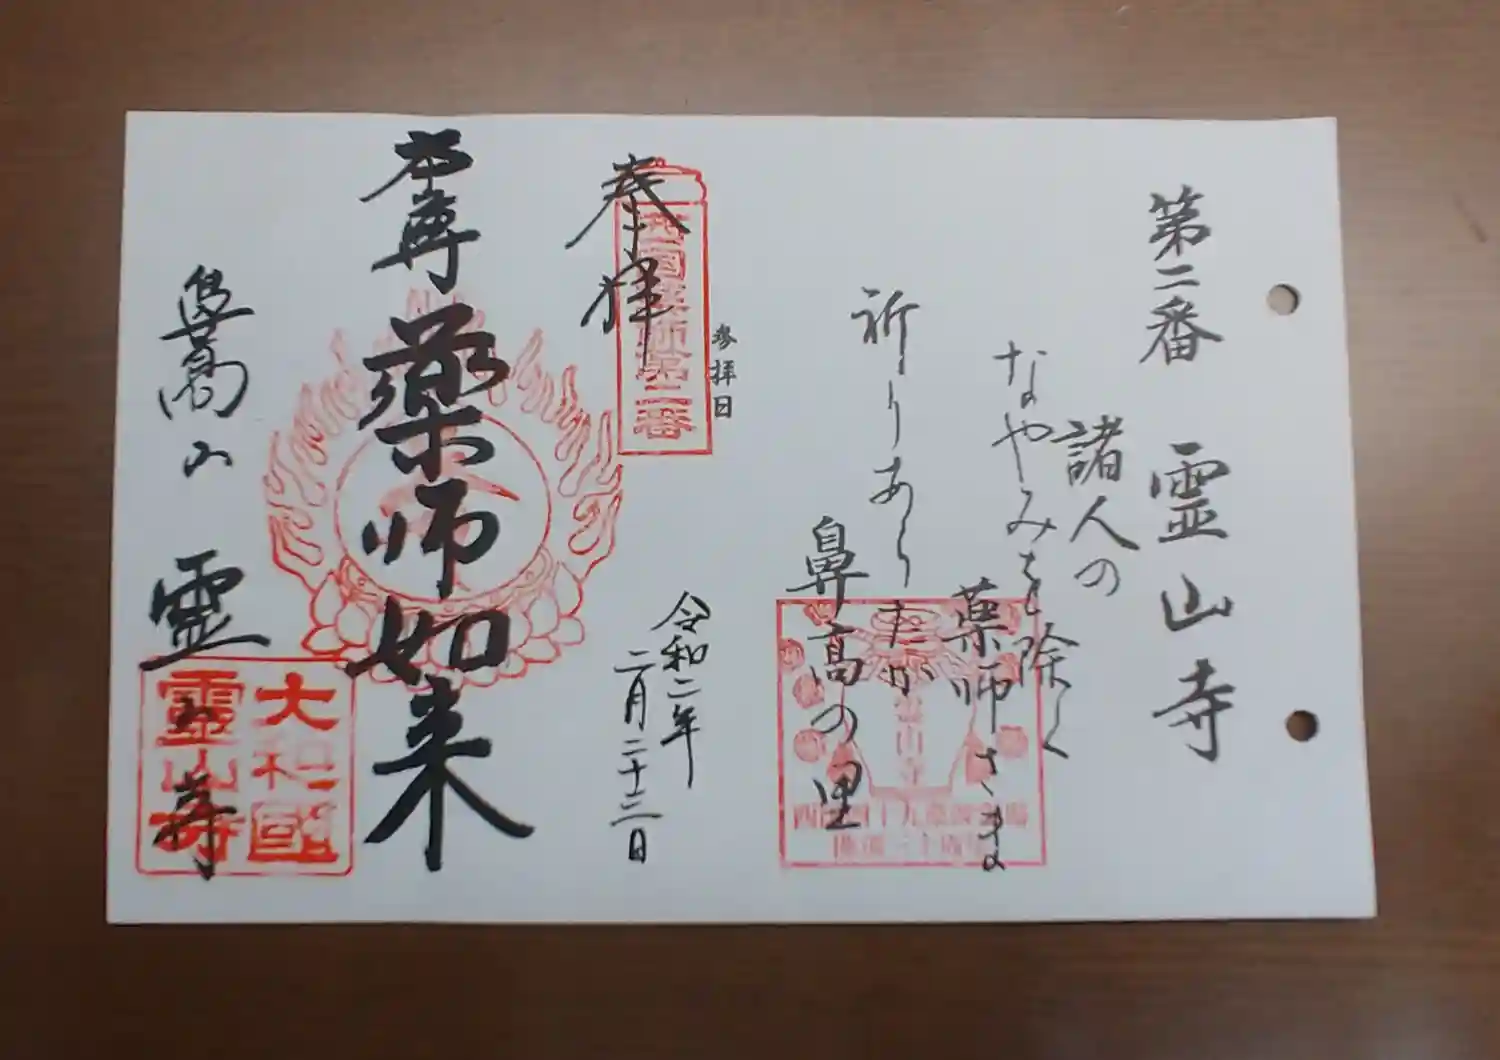 第二番 霊山寺
諸人の
なやみを除く
薬師さま
祈りあらたか
鼻高の里
参拝日
奉拝
西国薬師第二番
令和二年
二月二十三日
本尊 薬師如来
登美山 霊山寺
大和國
霊山寺
霊山寺